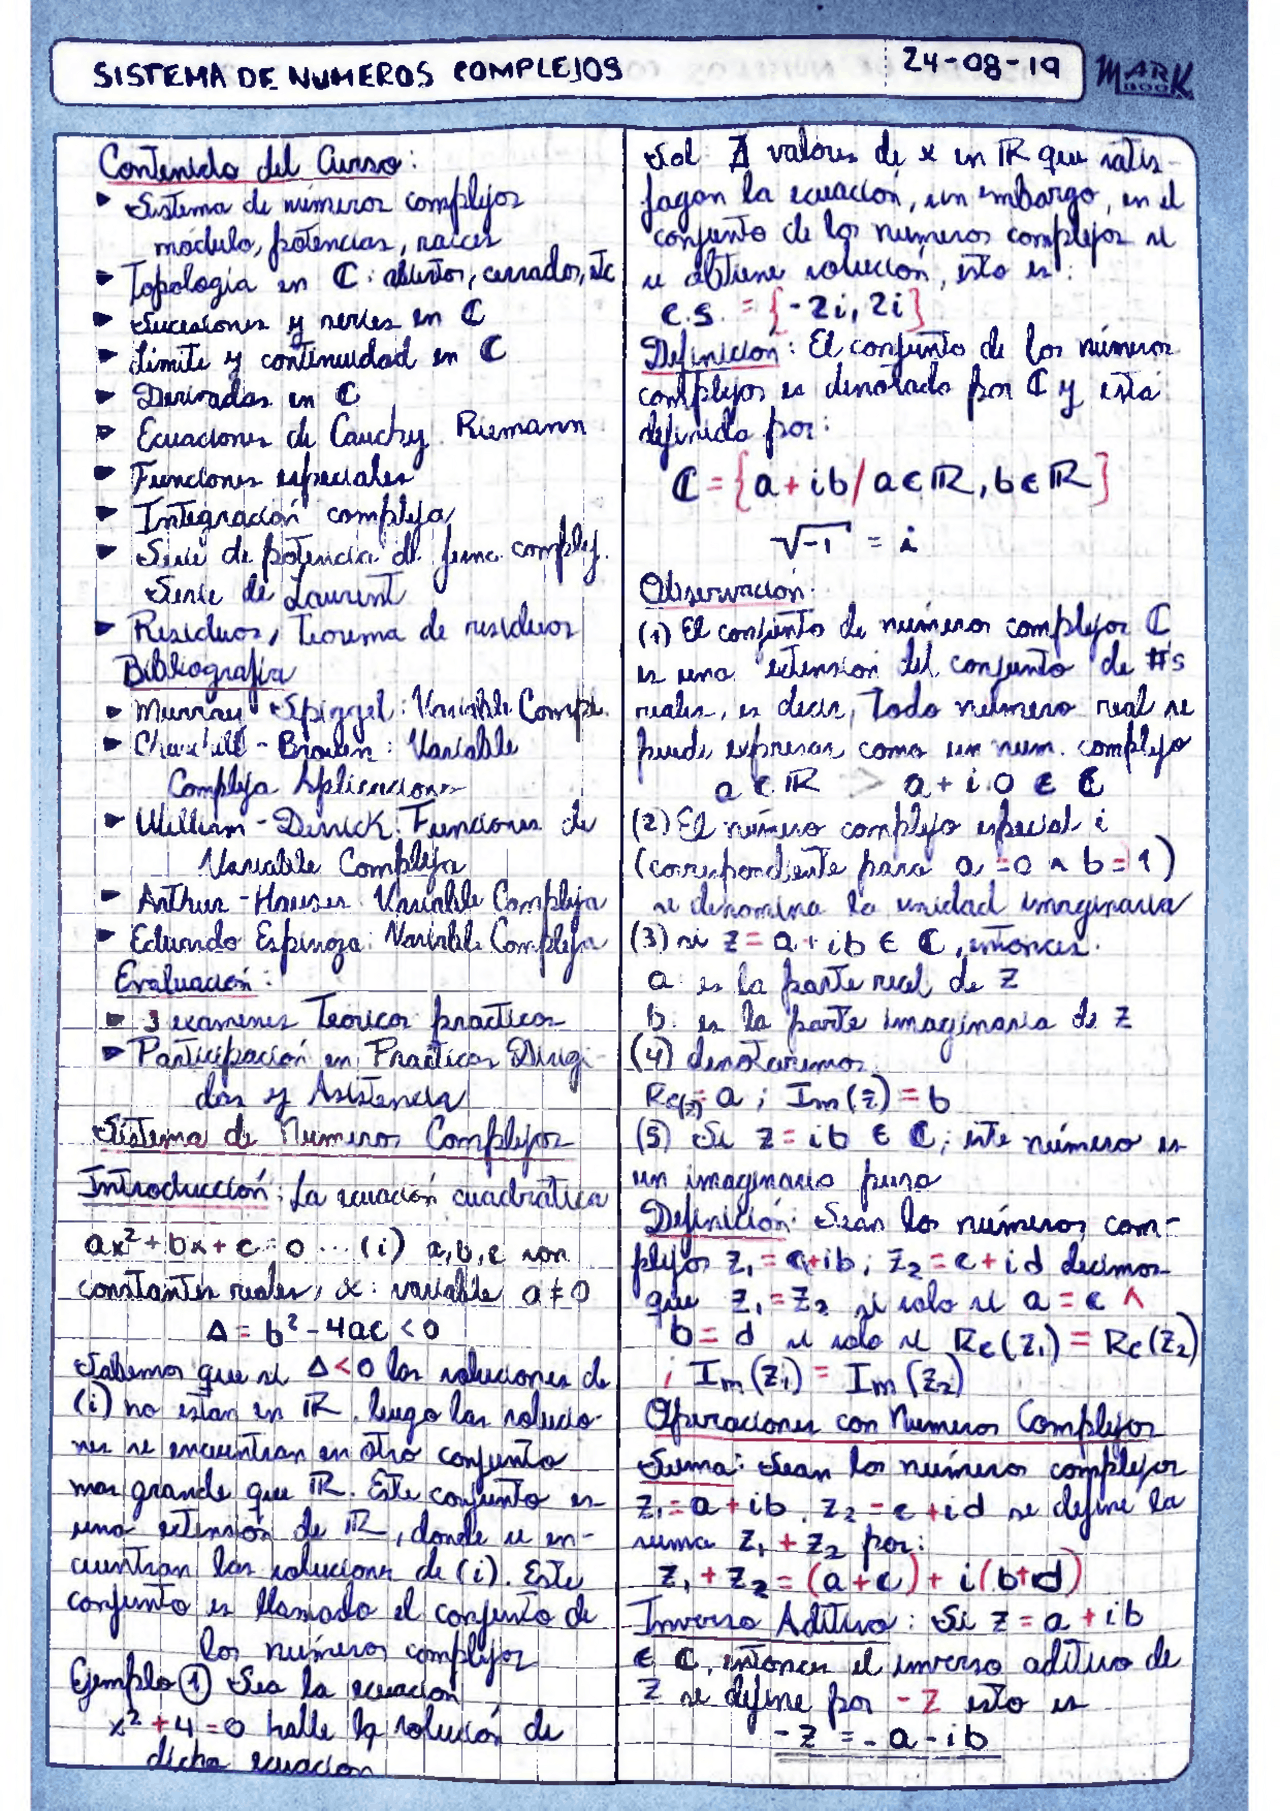 SISTEMA DE NUMEROS COMPLEJOS
24-08-19
MARK
BOOK
Contenido del Curso:
▸ Sistema de números complejos
módulo, potencias, raíces
▸ Topología en ℂ: abiertos, cerrados, etc
▸ Sucesiones y series en ℂ
▸ Límite y continuidad en ℂ
▸ Derivadas en ℂ
▸ Ecuaciones de Cauchy Riemann
▸ Funciones especiales
▸ Integración compleja
▸ Serie de potencia de func complej.
Serie de Laurent
▸ Residuos, Teorema de residuos
Bibliografia
▸ Murray Spiggel: Variable Compl.
▸ Churchill - Brown: Variable
Compleja Aplicaciones
▸ William - Derrick: Funciones de
Variable Compleja
▸ Arthur - Hauser Variable Compleja
▸ Eduardo Espinoza: Variable Compleja
Evaluación:
▸ 3 examenes Teóricos practicos
▸ Participación en Practicas Dirigi-
das y Asistencia
Sistema de Numeros Complejos
Introducción: La ecuación cuadrática
ax² + bx + c = 0 ... (i) a, b, c son
constantes reales, x: variable a ≠ 0
Δ = b² - 4ac < 0
Sabemos que si Δ < 0 las soluciones de
(i) no están en ℝ. luego las solucio-
nes se encuentran en otro conjunto
mas grande que ℝ. Este conjunto es
una extensión de ℝ, donde se en-
cuentran las soluciones de (i). Este
conjunto es llamado el conjunto de
los números complejos
Ejemplo ① Sea la ecuacion
x² + 4 = 0 halle la solución de
dicha ecuacion
Sol: ∄ valores de x en ℝ que satis-
fagan la ecuación, sin embargo, en el
conjunto de los numeros complejos si
se obtiene solución, esto es:
C.S. = {-2i, 2i}
Definición: El conjunto de los números
complejos es denotado por ℂ y está
definido por:
ℂ = {a + ib / a ∈ ℝ, b ∈ ℝ}
√-1 = i
Observación:
(1) El conjunto de números complejos ℂ
es una extensión del conjunto de #'s
reales, es decir, Todo número real se
puede expresar como un num. complejo
a ∈ ℝ > a + i.0 ∈ ℂ
(2) El número complejo especial i
(correspondiente para a = 0 ∧ b = 1)
se denomina la unidad imaginaria
(3) si z = a + ib ∈ ℂ, entonces:
a: es la parte real de z
b: es la parte imaginaria de z
(4) denotaremos
Re(z) = a ; Im(z) = b
(5) Si z = ib ∈ ℂ; este número es
un imaginario puro
Definición: Sean los números com-
plejos z₁ = a + ib ; z₂ = c + id decimos
que z₁ = z₂ si solo si a = c ∧
b = d si solo si Re(z₁) = Re(z₂)
; Im(z₁) = Im(z₂)
Operaciones con Numeros Complejos
Suma: Sean los números complejos
z₁ = a + ib, z₂ = c + id se define la
suma z₁ + z₂ por:
z₁ + z₂ = (a + c) + i(b + d)
Inverso Aditivo: Si z = a + ib
∈ ℂ, entonces el inverso aditivo de
z se define por -z esto es
-z = -a - ib